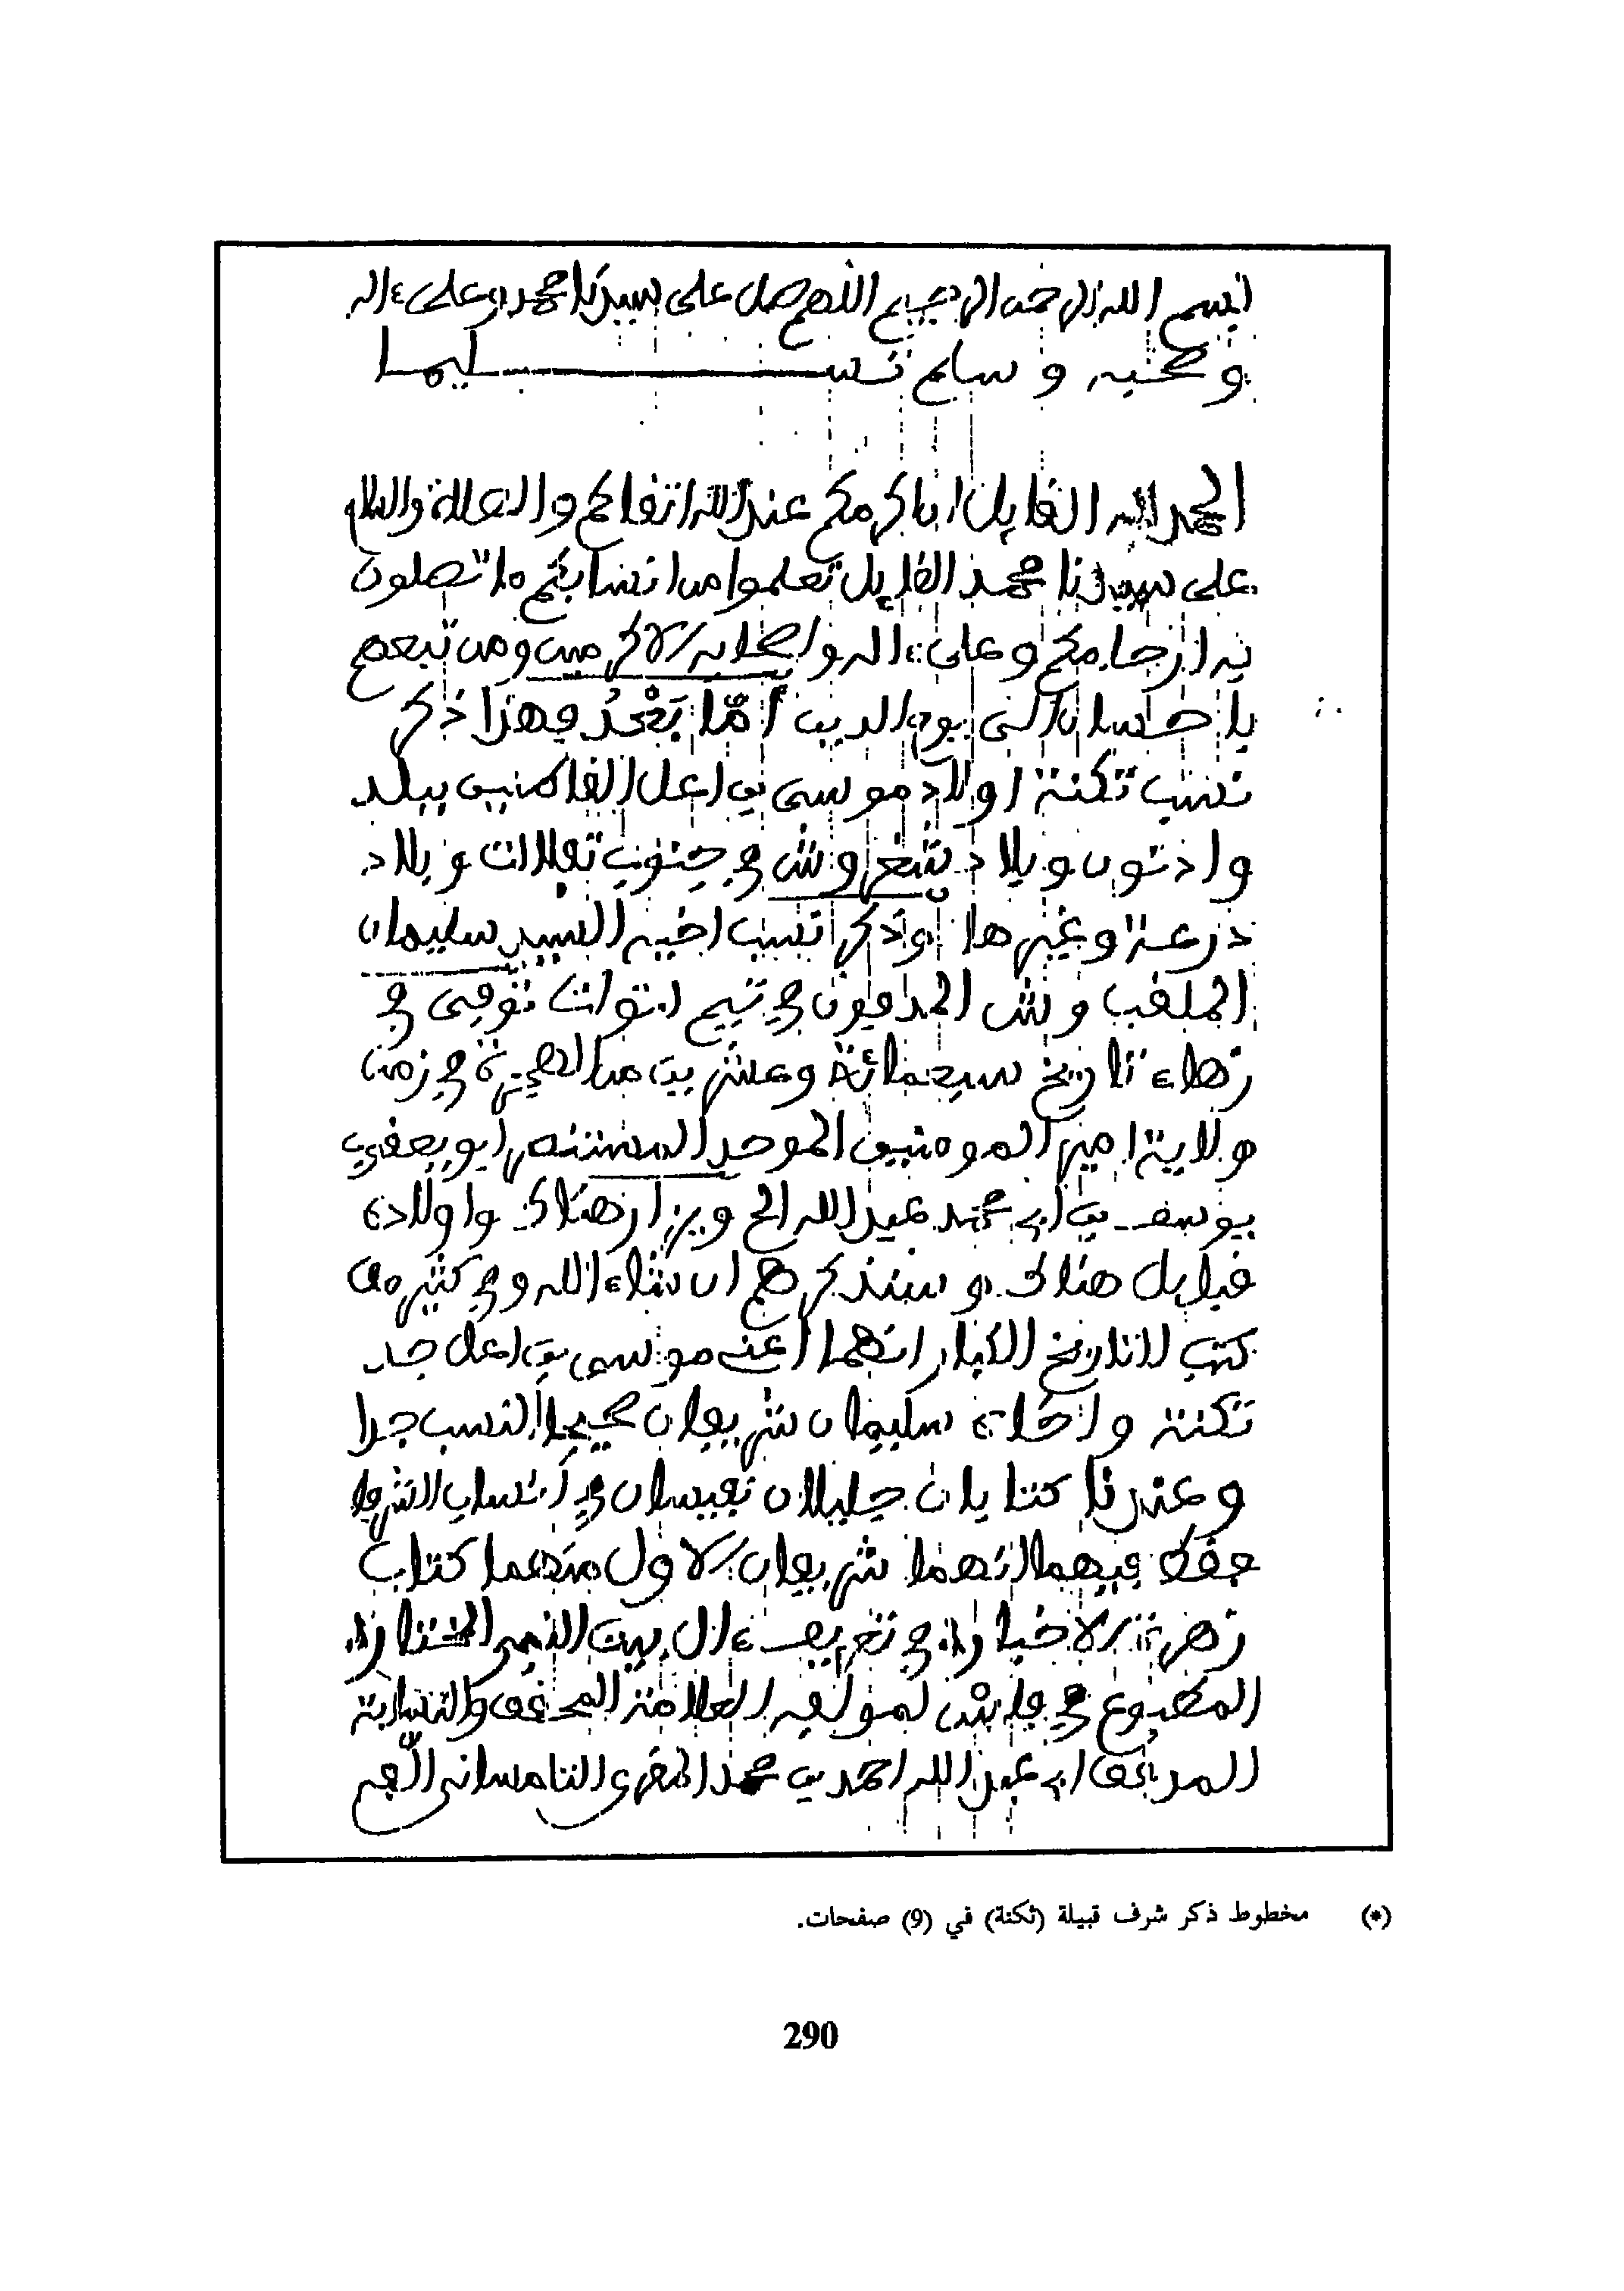 بسم الله الرحمن الرحيم اللهم صل على سيدنا محمد وعلى ءاله
وصحبه وسلم تسليما
الحمد لله القايل ان اكرمكم عند الله اتقاكم والصلاة والسلام
على سيدنا محمد القايل تعلموا من انسابكم ما تصلون
به ارحامكم وعلى ءاله واصحابه الاكرمين ومن تبعهم
باحسان الى يوم الدين أمّا بَعْدُ فهذا ذكر
نسب تكنة اولاد موسى بن اعل القاطنين ببلد
وادنون وبلاد في جنوب تفلالت وبلاد
درعة وغيرها وذكر نسب اخيه السيد سليمان
الملقب وش المدفون في توات توفي في
زهاء تاريخ سبعمائة وعشرين من الهجرة في زمن
ولاية امير المومنين الموحد المستنصر ابو يعقوب
يوسف بن ابي محمد عبد الله الخ ويزار هناك واولاده
قبايل هناك وسنذكرهم ان شاء الله وفي كثير من
كتب التاريخ الكبار انهما اعني موسى بن اعل جد
تكنة واخاه سليمان شريفان صحيحا النسب جدا
وعندنا كتابان جليلان نفيسان في انساب الشرفا
حقق فيهما انهما شريفان الاول منهما كتاب
زهرة الاخبار في تعريف ءال بيت النبي المختار
المطبوع في فاس لمولفه العلامة المحقق والنسابة
المدقق ابي عبد الله احمد بن محمد المقري التلمساني
(*) مخطوط ذكر شرف قبيلة (تكنة) في (9) صفحات.
290